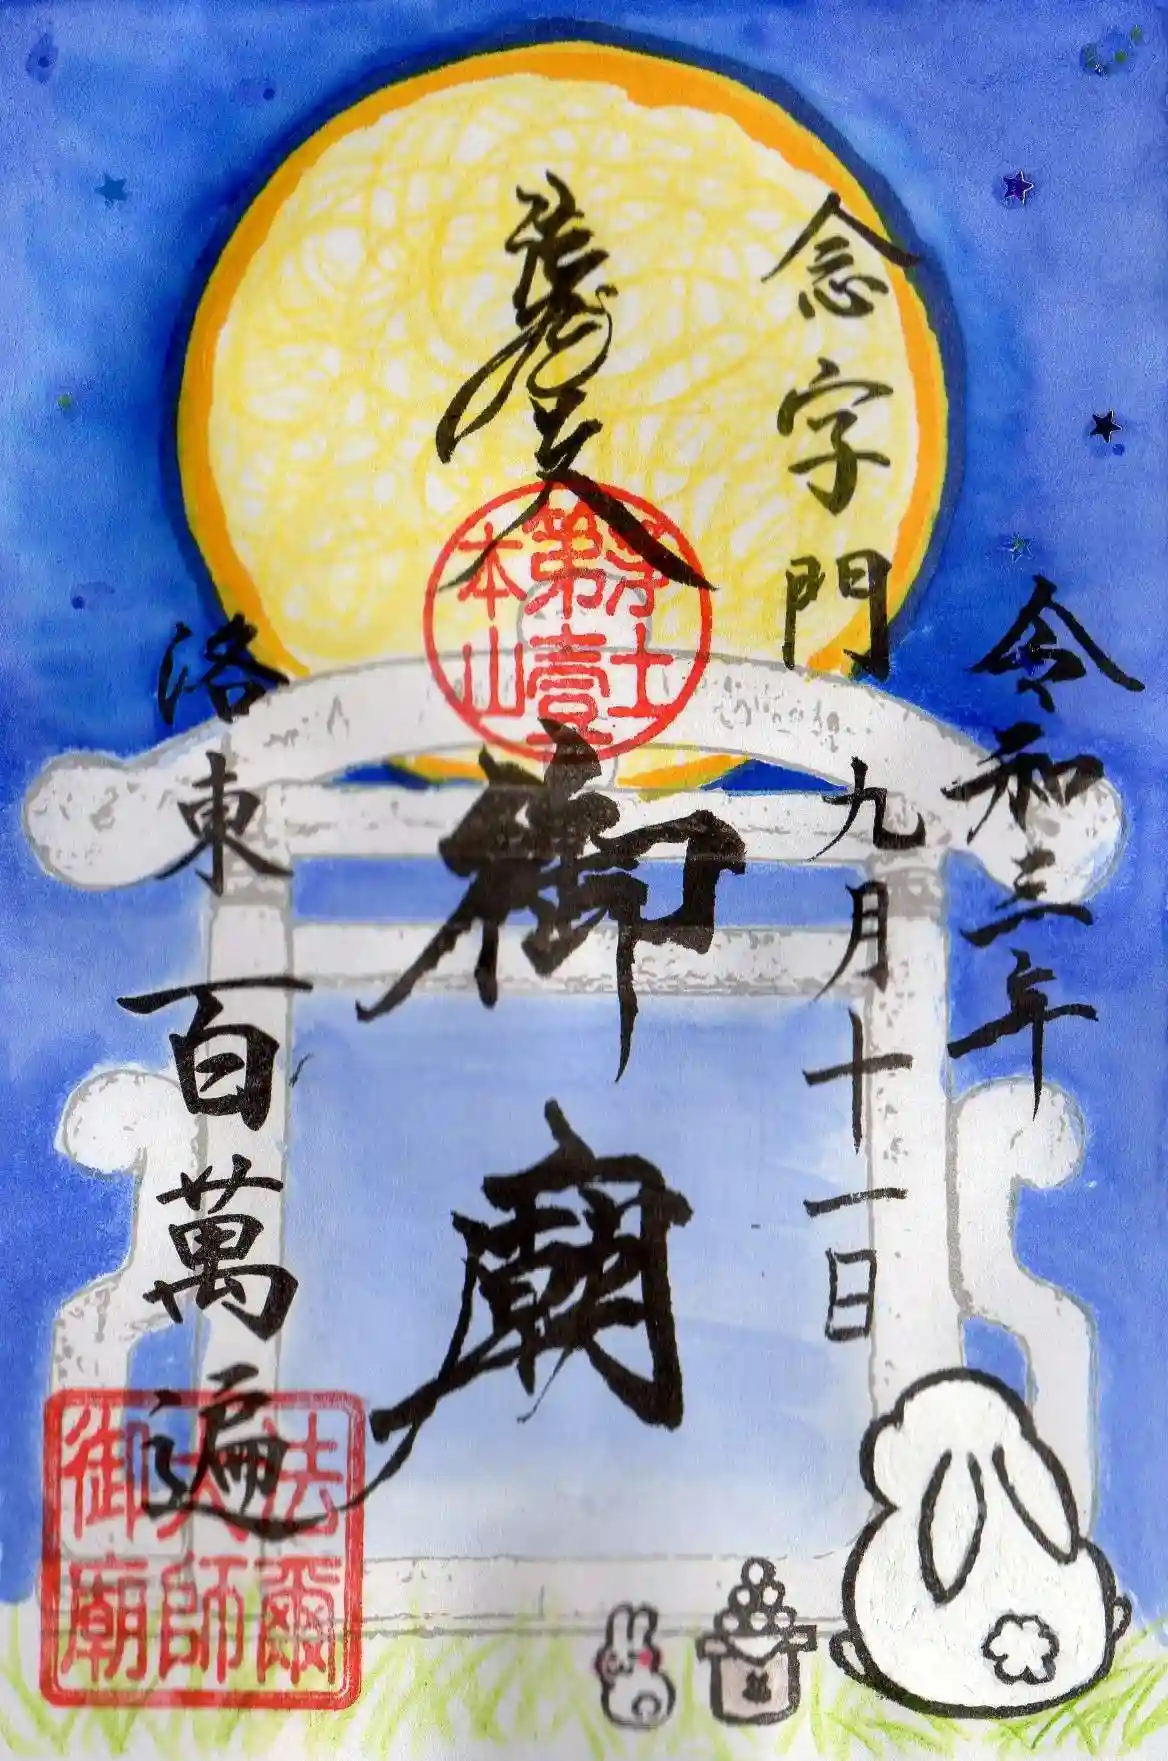 令和三年
九月十一日
念字門
慶笑
御廟
洛東百萬遍
浄土
第壹
本山
法爾
大師
御廟